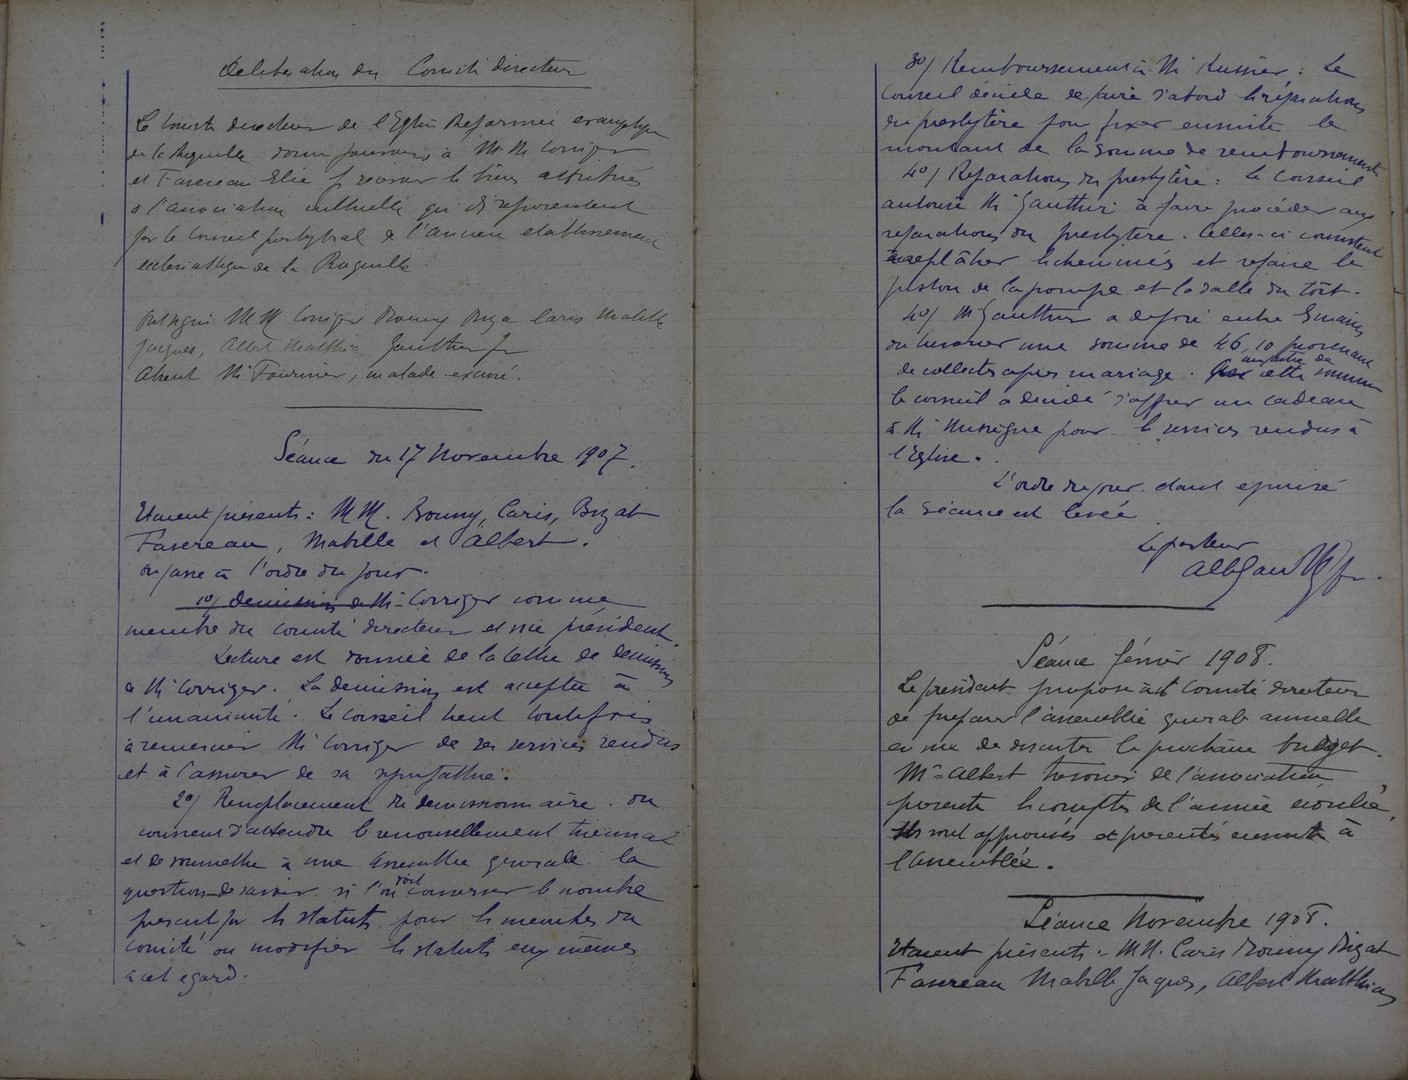 Délibération du Comité directeur
Le Comité directeur de l'Eglise Réformée évangélique
de la Roquille donne pouvoirs à M.M. Corriger
et Favereau Elie pr recevoir les biens attribués
à l'association cultuelle qui dépendent
par le Conseil presbytéral de l'ancien établissement
ecclésiastique de la Roquille
Ont signé MM Corriger Bouny Bizat Caris Mabille
Jacques, Albert Matthieu, Gauthier pr
Absent Mr Fournier, malade excusé.
Séance du 17 Novembre 1907.
Etaient présents : MM. Bouny, Caris, Bizat
Favereau, Mabille et Albert.
on passe à l'ordre du jour.
1o/ Démission de Mr Corriger comme
membre du comité directeur et vice président.
Lecture est donnée de la lettre de démission
de Mr Corriger. La démission est acceptée à
l'unanimité. Le Conseil tient toutefois
à remercier Mr Corriger de ses services rendus
et à l'assurer de sa sympathie.
2o/ Remplacement du démissionnaire. on
convient d'attendre le renouvellement triennal
et de soumettre à une Assemblée générale la
question de savoir si l'on doit conserver le nombre
prescrit par les statuts pour les membres du
comité ou modifier les statuts eux mêmes
à cet égard.
3o/ Remboursement à Mr Kussier : Le
Conseil décide de faire d'abord les réparations
du presbytère pour fixer ensuite le
montant de la somme de remboursement
4o/ Réparations du presbytère : Le Conseil
autorise Mr Gauthier à faire procéder aux
réparations du presbytère. Celles-ci consistent
à replâtrer les cheminées et refaire le
piston de la pompe et la dalle du toît.
4o/ Mr Gauthier a déposé entre les mains
du trésorier une somme de 46,10 provenant
de collectes après mariage. Avec une partie de cette somme
le conseil a décidé d'offrir un cadeau
à Mr pour les services rendus à
l'Eglise.
L'ordre du jour étant épuisé
la séance est levée
Le pasteur
Alb Gauthier pr.
Séance février 1908.
Le président propose au Comité directeur
de préparer l'assemblée générale annuelle
en vue de discuter le prochain budget.
Mr Albert trésorier de l'association
présente les comptes de l'année écoulée,
Ils sont approuvés et présentés ensuite à
l'Assemblée.
Séance Novembre 1908.
Etaient présents : MM. Caris Bouny Bizat
Favereau Mabille Jacques, Albert Matthieu